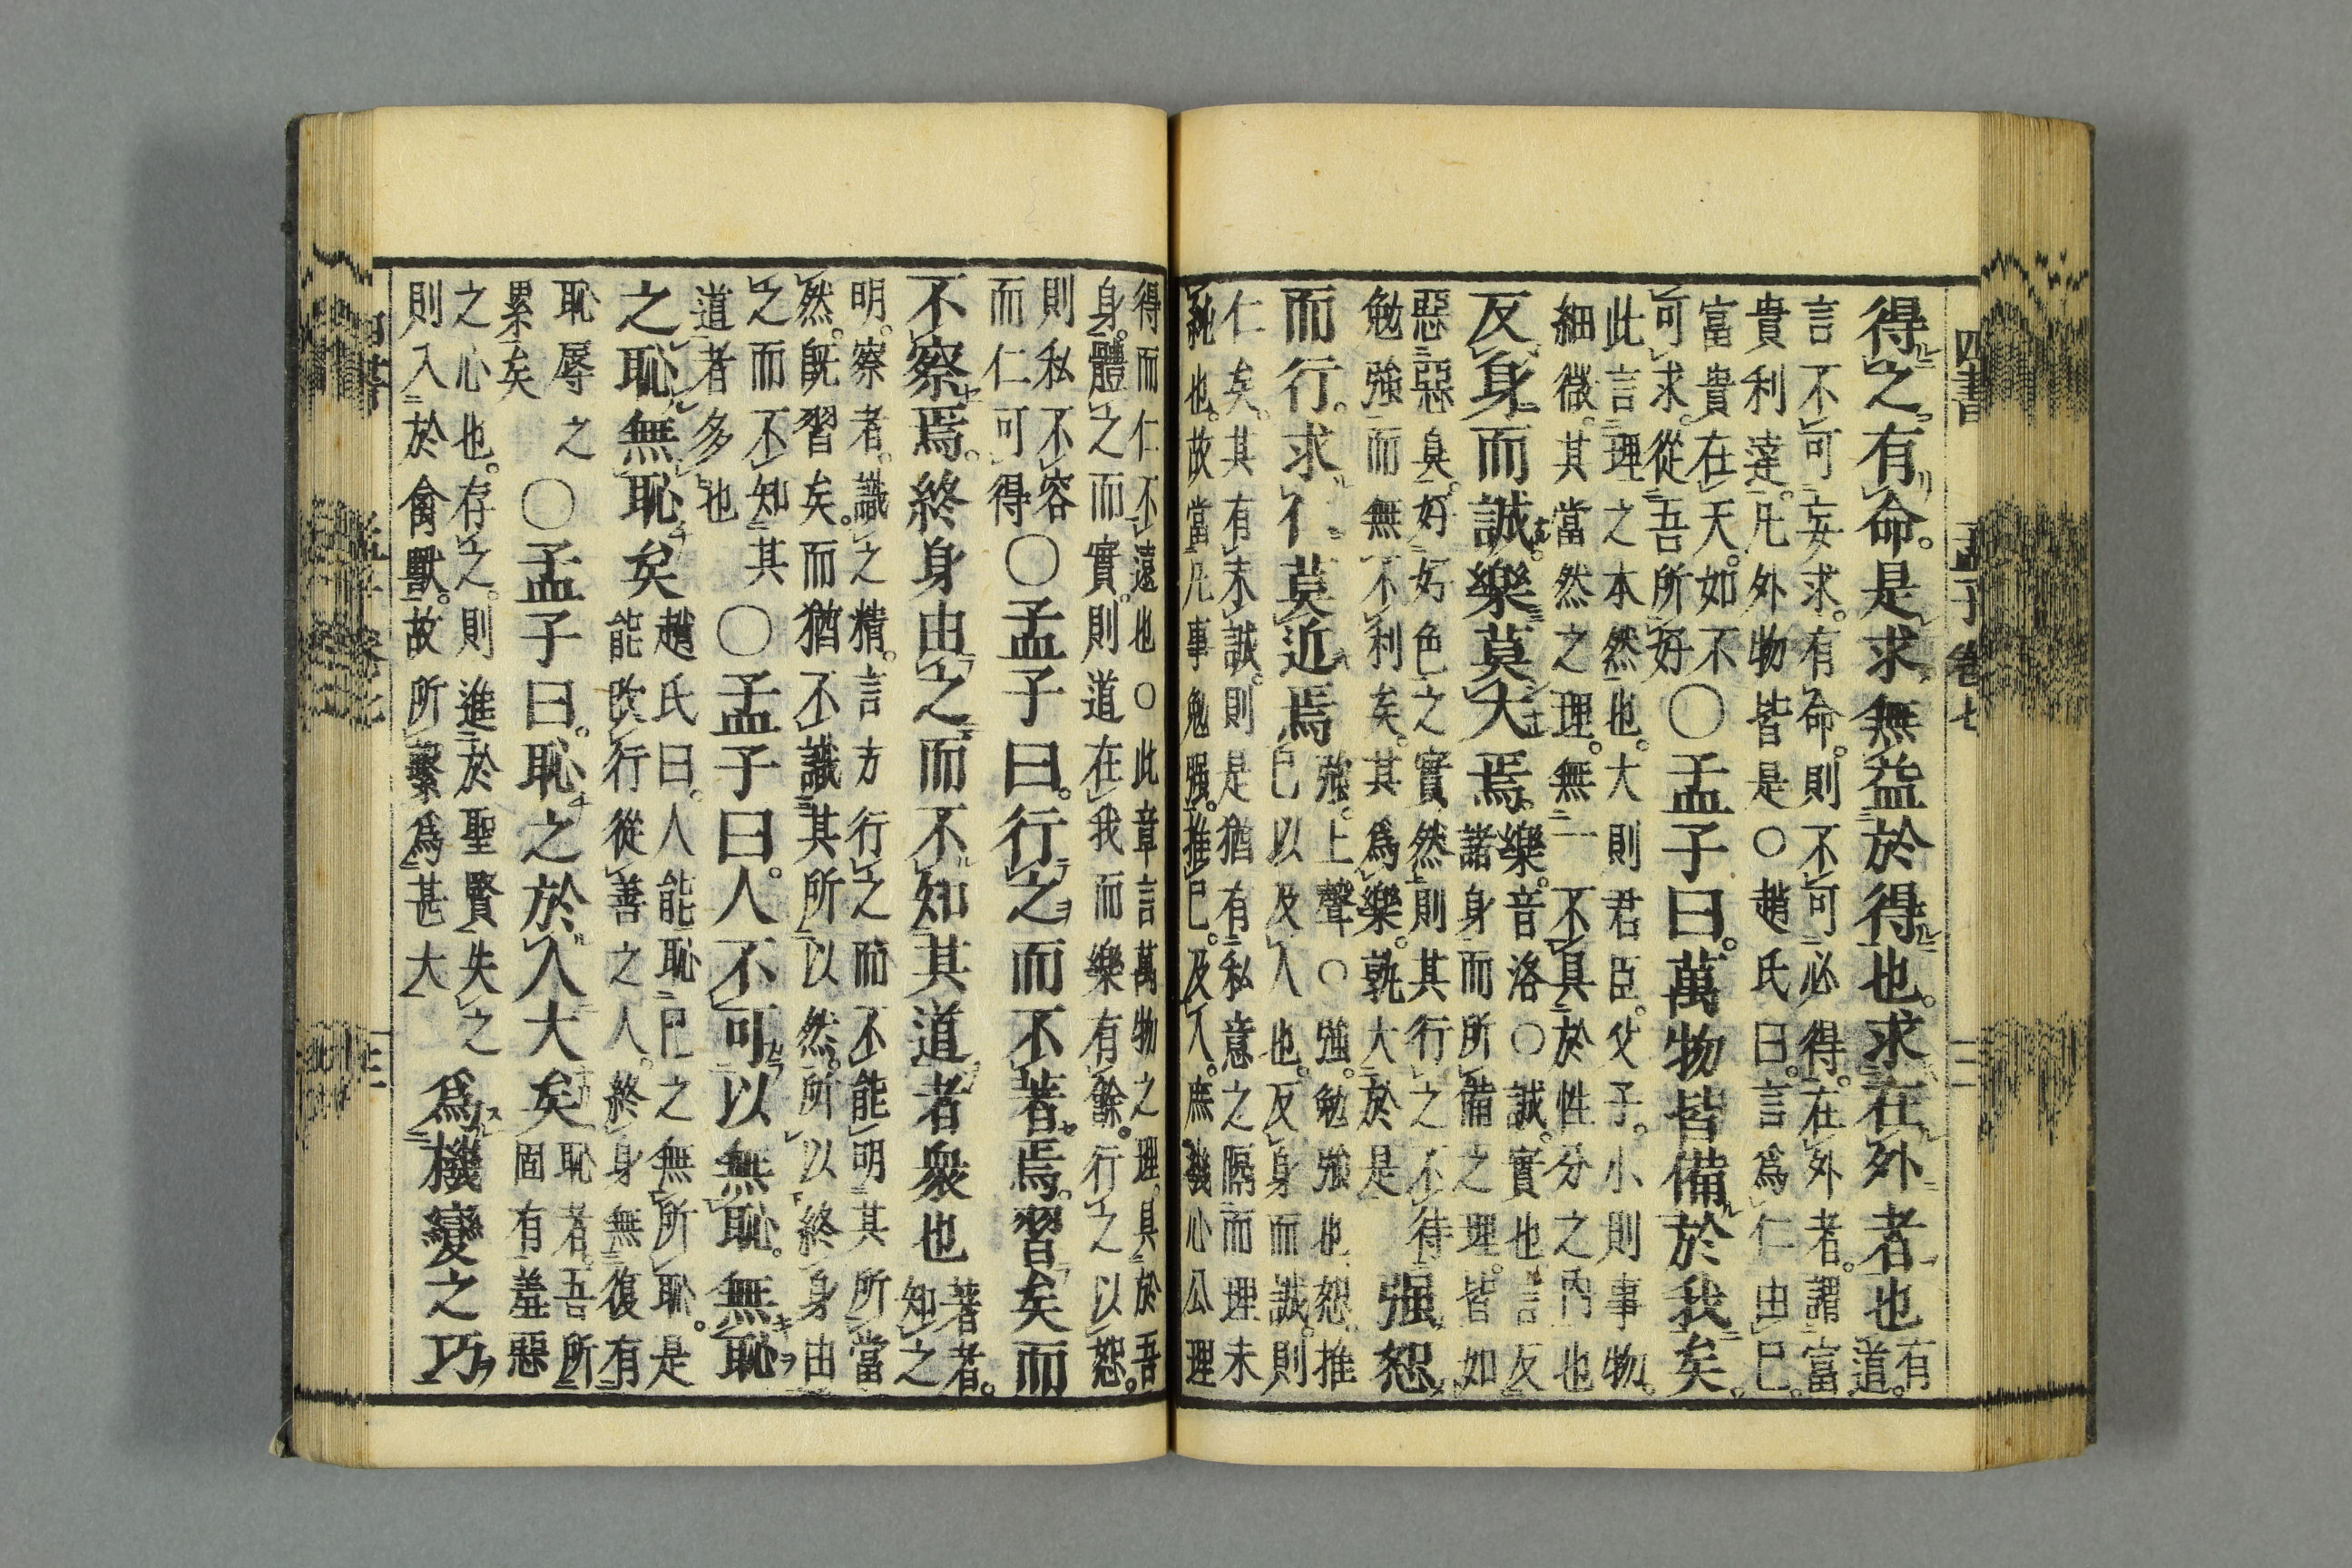 四書　孟子卷七　二
得之。有命。是求無益於得也。求在外者也
有
道。
言不可妄求。有命。則不可必得。在外者。謂富
貴利達。凡外物皆是○趙氏曰。言爲仁由已。
富貴在天。如不
可求。從吾所好
○孟子曰。萬物皆備於我矣。
此言理之本然也。大則君臣。父子。小則事物。
細微。其當然之理。無一不具於性分之內也
反身而誠。樂莫大焉。
樂。音洛○誠。實也言反
諸身而所備之理。皆如
惡惡臭。好好色之實然則其行之不待
勉強而無不利矣。其爲樂。孰大於是
强恕
而行。求仁莫近焉
強。上聲○強。勉強也恕。推
已以及人也。反身而誠。則
仁矣。其有未誠。則是猶有私意之隔而理未
純也。故當凡事勉强。推已。及人。庶幾心公理
得而仁不遠也○此章言萬物之理。具於吾
身。體之而實。則道在我而樂有餘。行之以恕。
則私不容
而仁可得
○孟子曰。行之而不著。焉。習矣而
不察焉。終身由之而不知其道者衆也
著者。
知之
明。察者。識之精。言方行之而不能明其所當
然。既習矣。而猶不識其所以然。所以終身由
之而不知其
道者多也
○孟子曰。人不可以無恥。無恥
之恥無恥矣
趙氏曰。人能恥已之無所恥。是
能改行從善之人。終身無復有
恥辱之
累矣
○孟子曰。恥之於人大矣
恥者。吾所
固有羞惡
之心也。存之。則進於聖賢失之
則入於禽獸。故所繫爲甚大
爲機變之巧